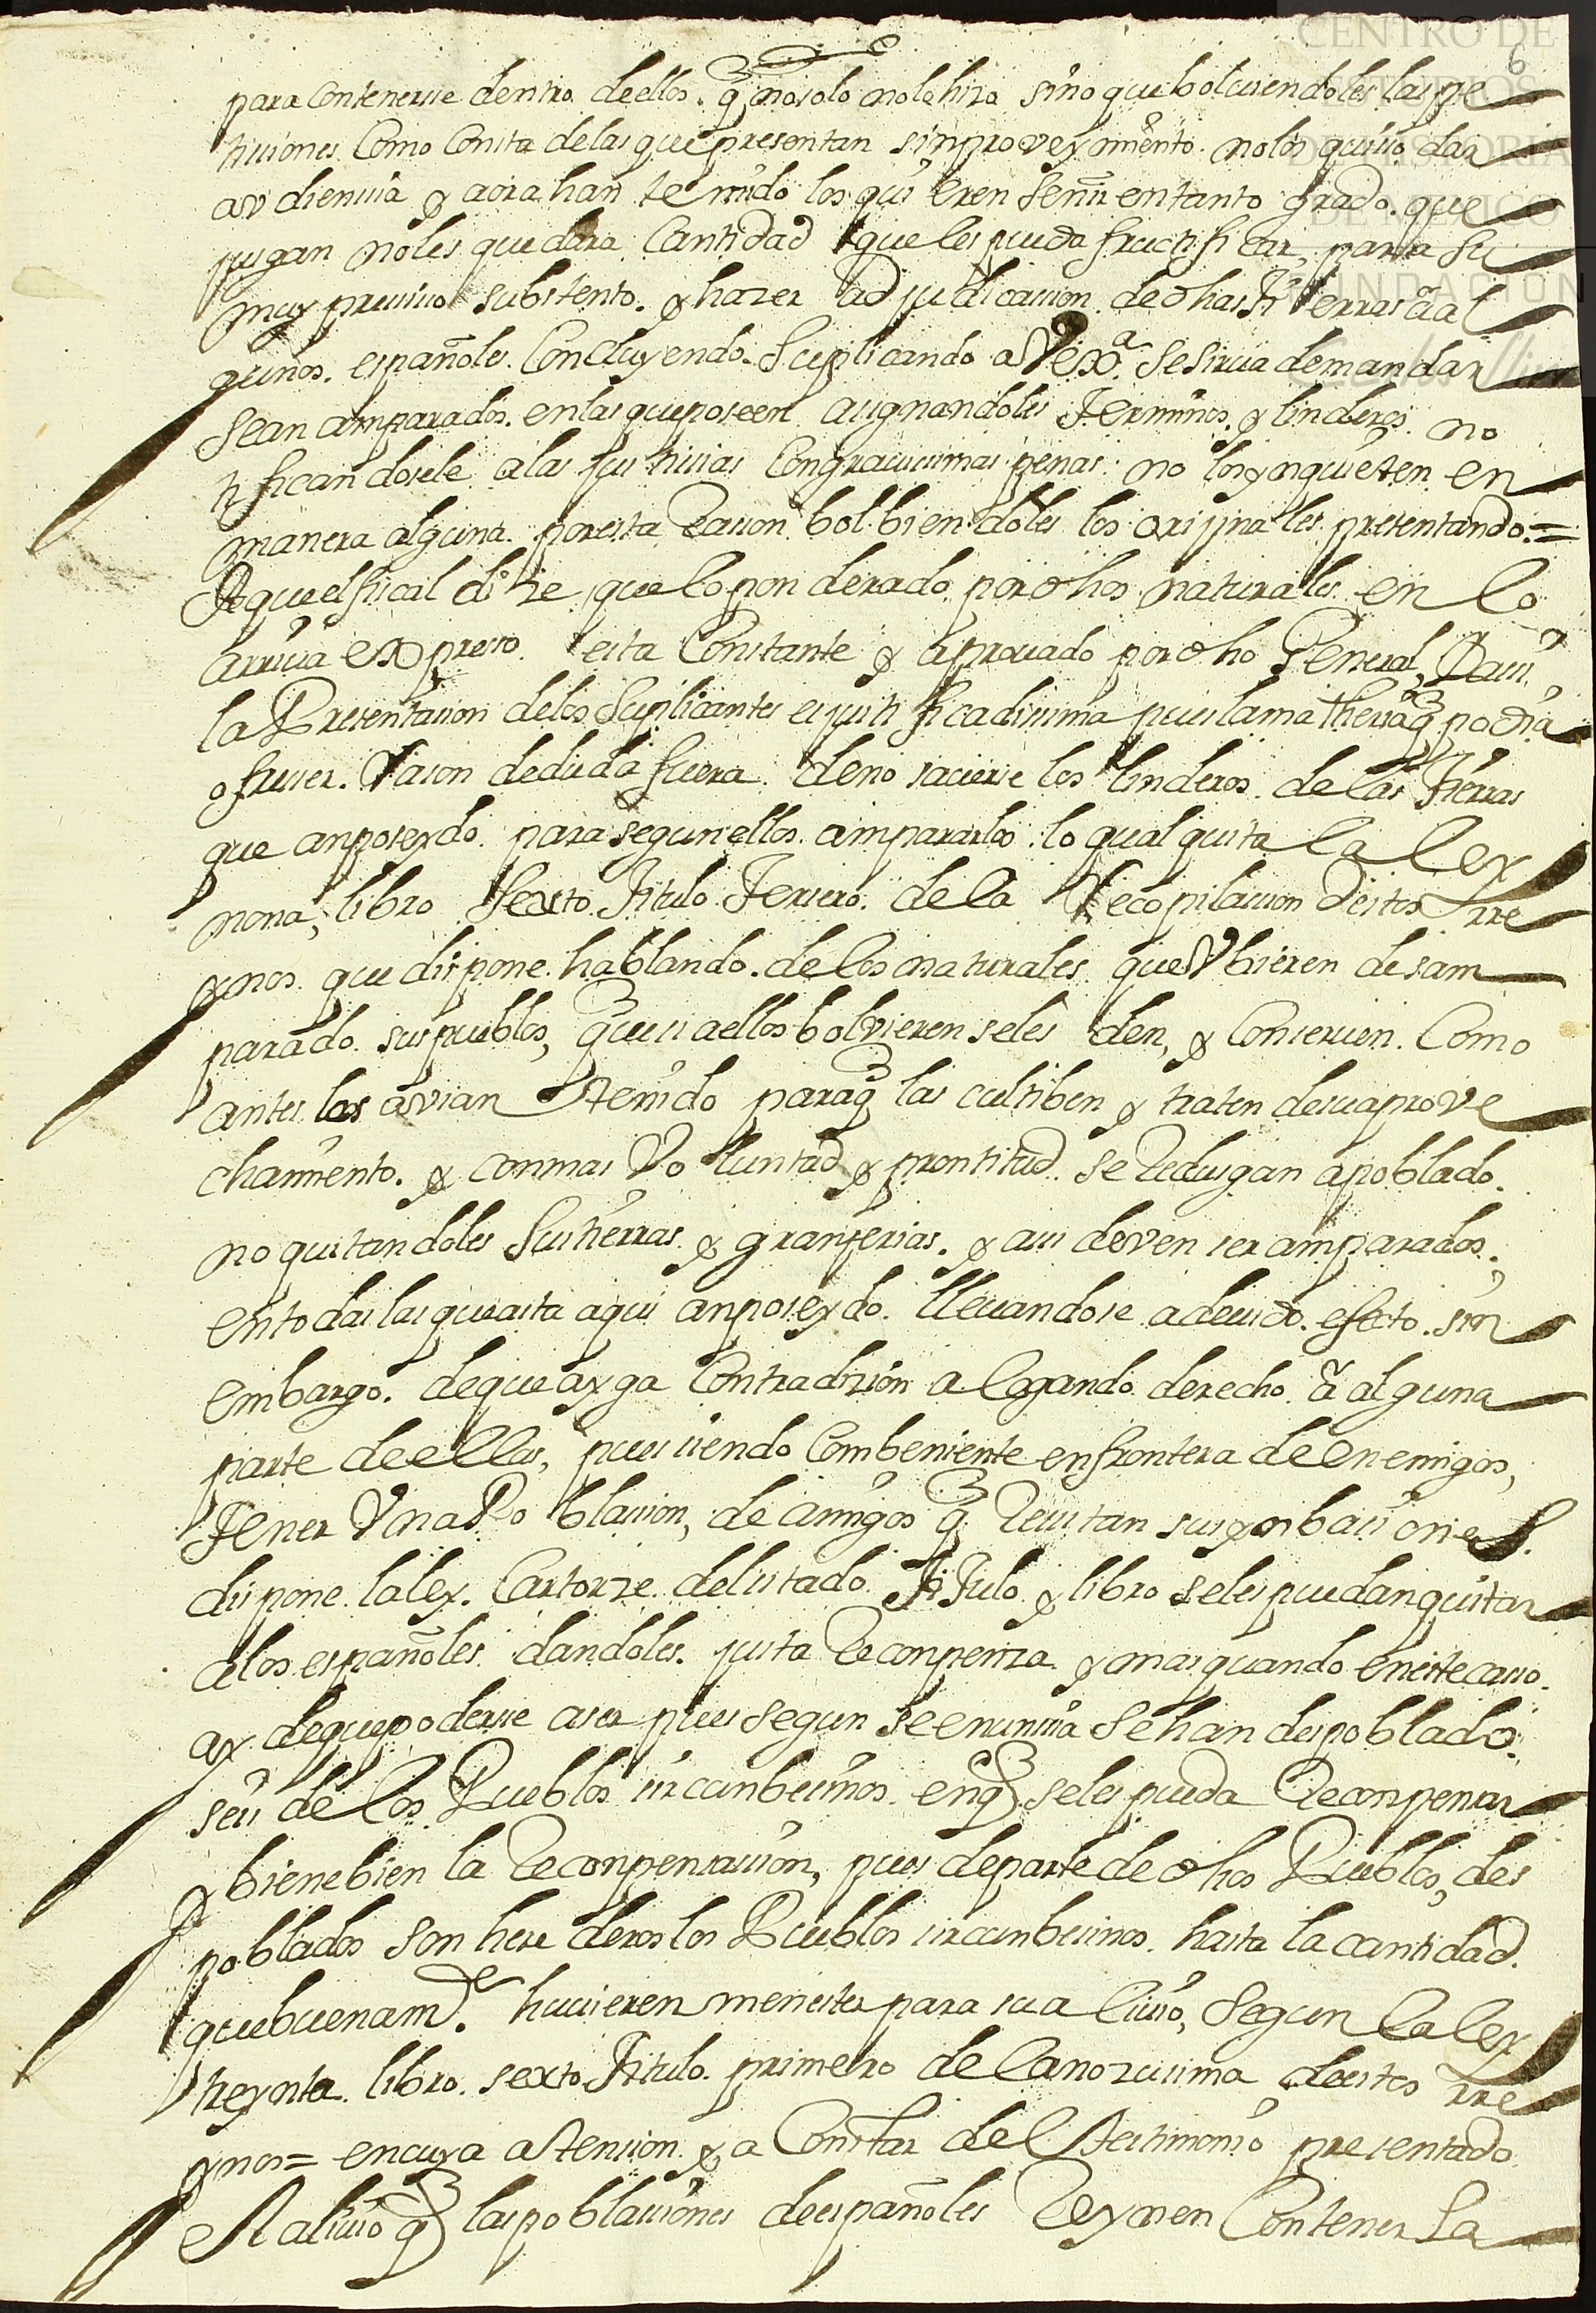 CENTRO DE
ESTUDIOS
DE HISTORIA
DE MEXICO
FUNDACION
6
para contenerse dentro de ellos. q no solo no lo hizo sino que bolviendoles las pe
ticiones Como Consta de las que presentan sin proveymiento no los quisso dar
audiencia y aora han temido los quieren en tanto grado. que
jusgan no les quedara Cantidad que les pueda fructificar para su
muy presisso substento. y hazer adjudicacion de dhas tierras aal
gunos. españoles. Concluyendo. Suplicando a Vexa. se sirva de mandar
sean amparados. en las que poseen asignandoles Terminos. y linderos. no
tificandosele a las justicias Con gravissimas penas no los ynquieten en
manera alguna. por esta Racon bolbiendoles los orijinales presentando. =
A que el fiscal dize que lo ponderado por dhos naturales en lo
arriva expreso esta Constante y aprovado por dho General, Y assi
la Presentacion de los Suplicantes es justificadisima pues la matheria q podia
ofrecer. Racon de duda fuera de no saverse los linderos de las Tierras
que an poseydo para segun ellos ampararlos lo qual quita la ley
nona, libro Sexto Titulo Tercero de la Recopilacion destos rre
ynos que dispone hablando. de los naturales que Vbieren desam
parado sus pueblos, que si a ellos bolvieren se les den, y Conserven. Como
antes los avian tenido paraq las cultiben y traten de su aprove
chamiento. y con mas Voluntad y prontitud se Redusgan a poblado.
no quitandoles sus tierras y granjerias. y assi deven ser amparados.
en todas las que asta aqui an poseydo. llevandose a devido. efecto. sin
embargo. de que ayga Contradizion alegando derecho â alguna
parte de ellas, pues siendo Combeniente en frontera de enemigos,
Tener Vna Poblacion, de amigos q Resistan sus ynbasiones.
dispone la ley. Catorze del sitado Titulo y libro se les puedan quitar
a los españoles dandoles. justa Recompenza y mas quando en este casso.
ay de que poderse aser pues segun se enuncia se han despoblado.
seis de los Pueblos sircunbesinos. en q se les pueda Recompensar
y biene bien la Recompensacion, pues de parte de dhos Pueblos, des
poblados son herederos los Pueblos sircunbesinos. hasta la cantidad.
que buenamte. huvieren menester para su alivio, Segun la ley
treynta libro. sexto Titulo. primero de la nobissima destos rre
ynos = en cuya atension y a Constar del testimonio presentado.
El alivio q las poblaciones de españoles Resiven Con tener la